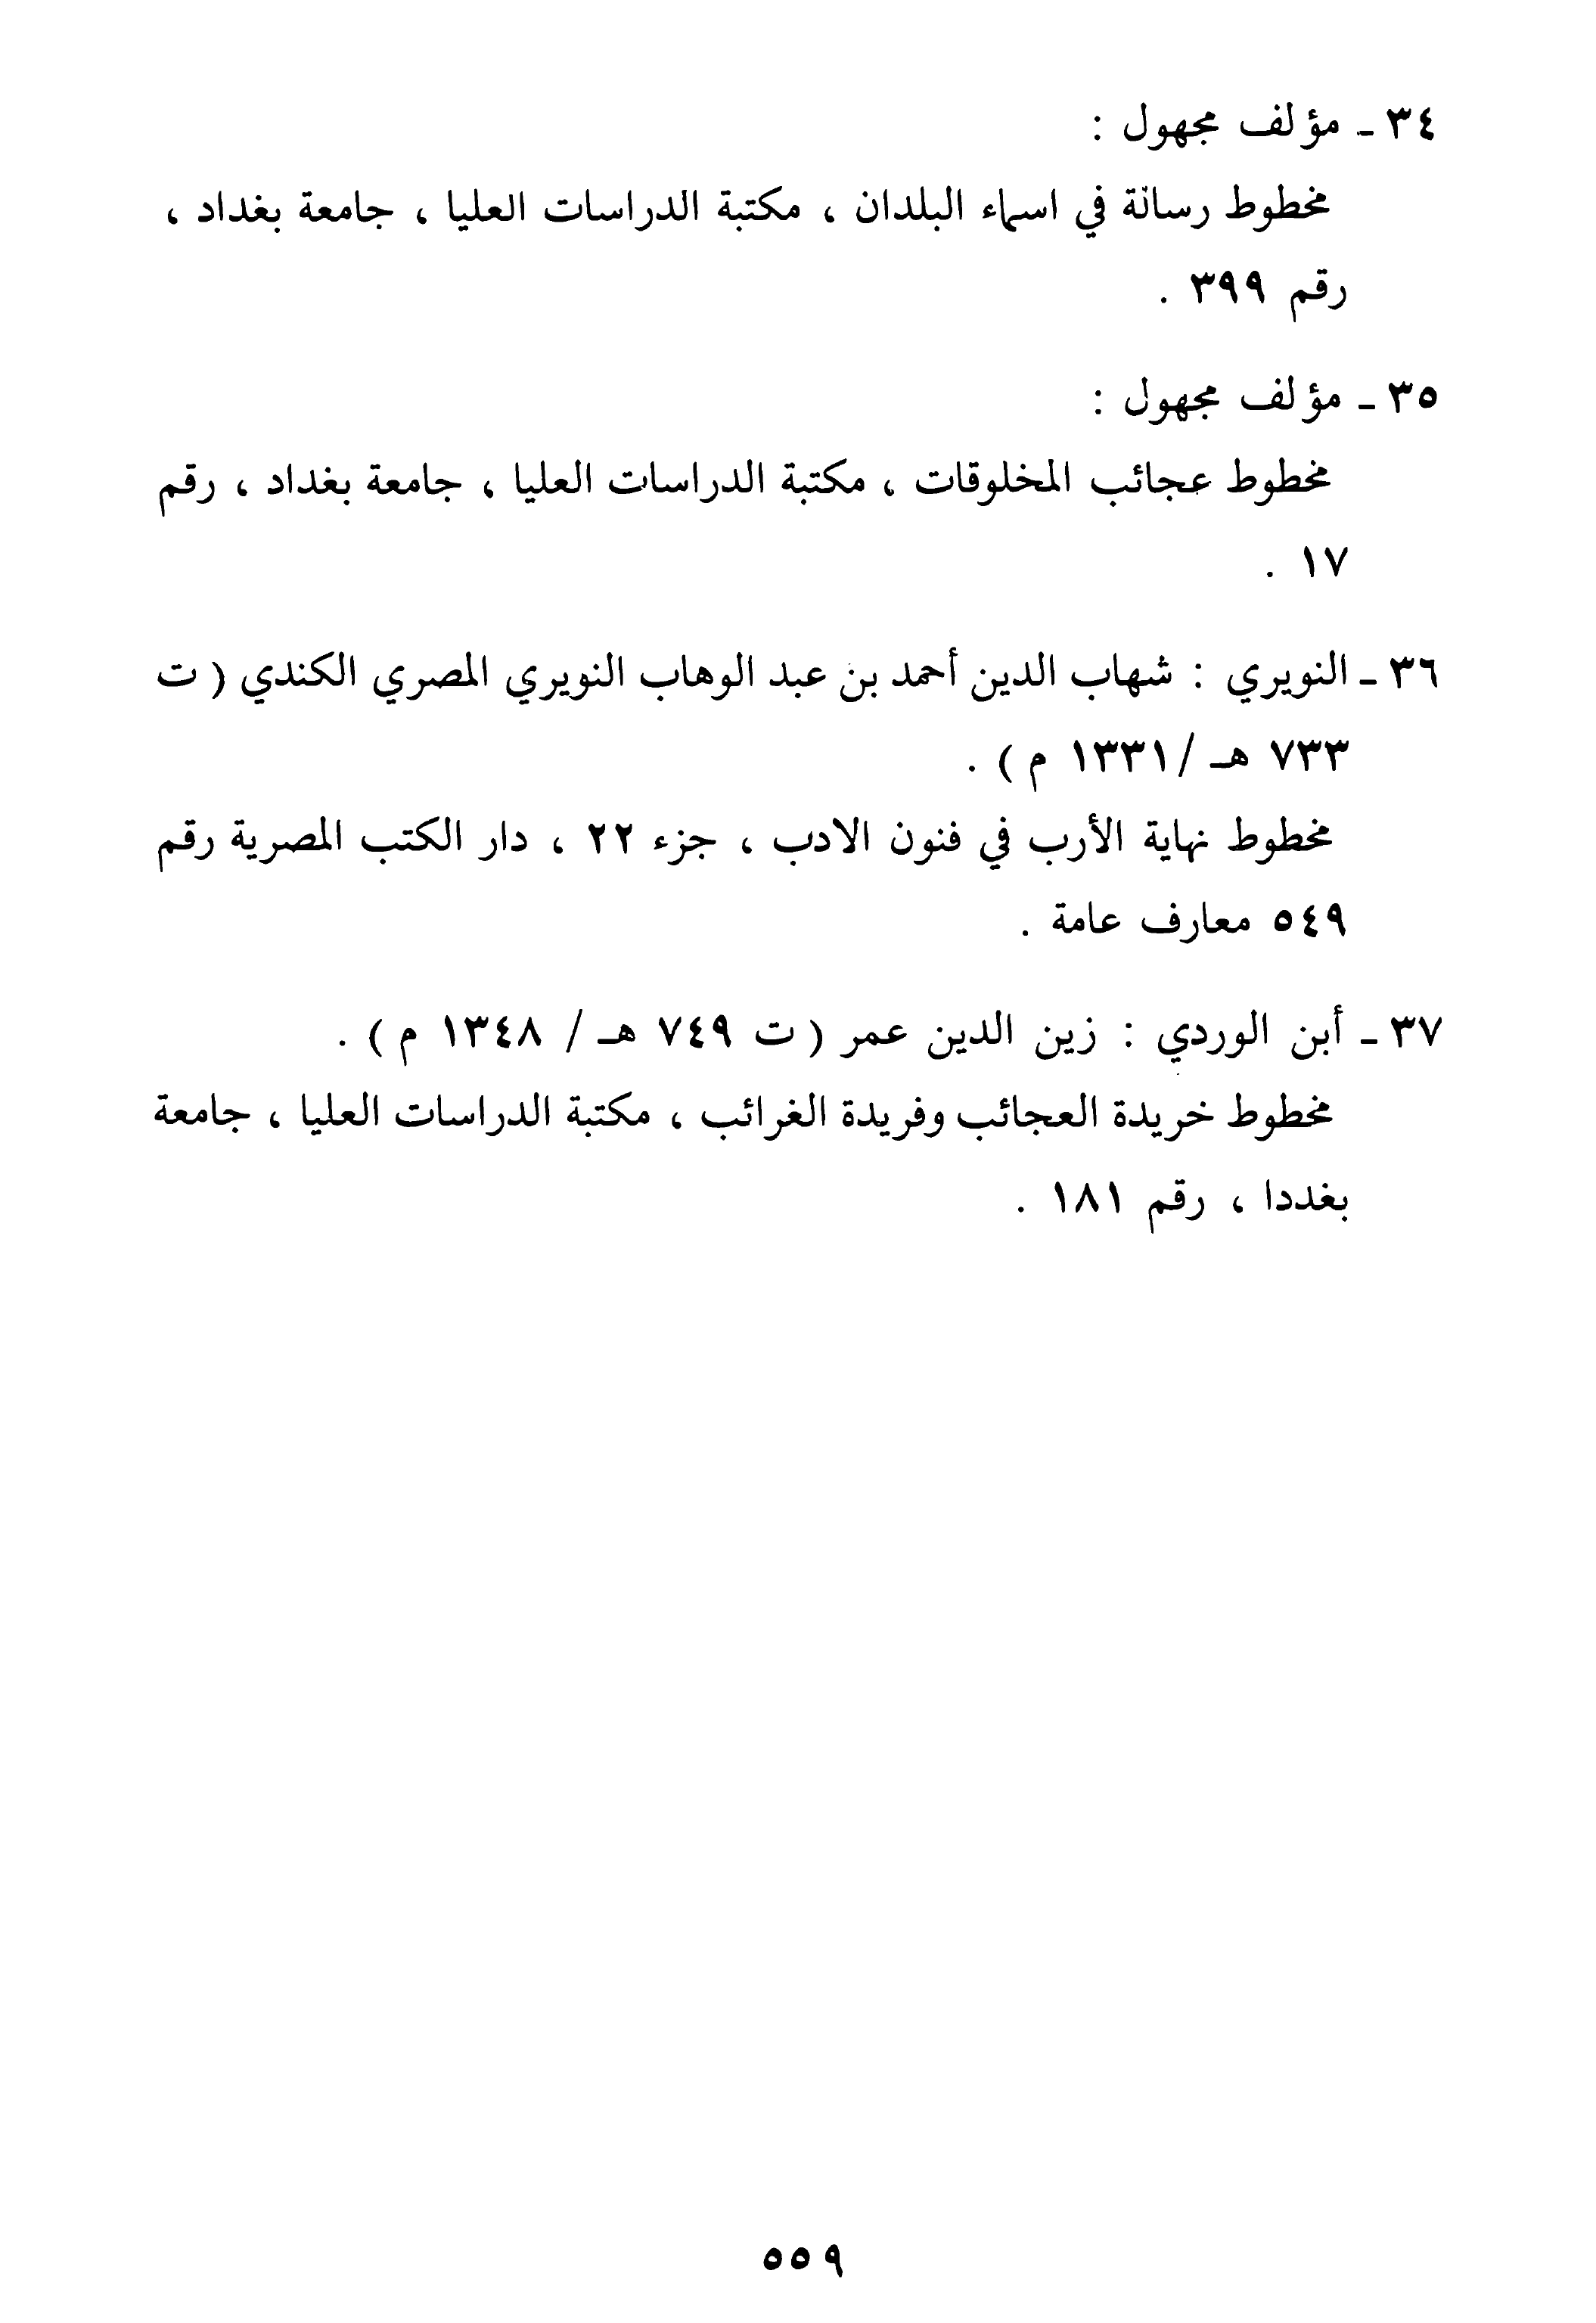 ٣٤ ـ مؤلف مجهول :
مخطوط رسالة في اسماء البلدان ، مكتبة الدراسات العليا ، جامعة بغداد ،
رقم ٣٩٩ .
٣٥ ـ مؤلف مجهول :
مخطوط عجائب المخلوقات ، مكتبة الدراسات العليا ، جامعة بغداد ، رقم
١٧ .
٣٦ ـ النويري : شهاب الدين أحمد بن عبد الوهاب النويري المصري الكندي ( ت
٧٣٣ هـ /١٣٣١ م ) .
مخطوط نهاية الأرب في فنون الادب ، جزء ٢٢ ، دار الكتب المصرية رقم
٥٤٩ معارف عامة .
٣٧ ـ أبن الوردي : زين الدين عمر ( ت ٧٤٩ هـ / ١٣٤٨ م ) .
مخطوط خريدة العجائب وفريدة الغرائب ، مكتبة الدراسات العليا ، جامعة
بغددا ، رقم ١٨١ .
٥٥٩